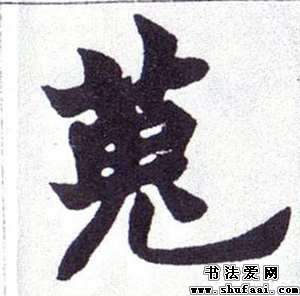 蒐
书法爱网
www.shufaai.com